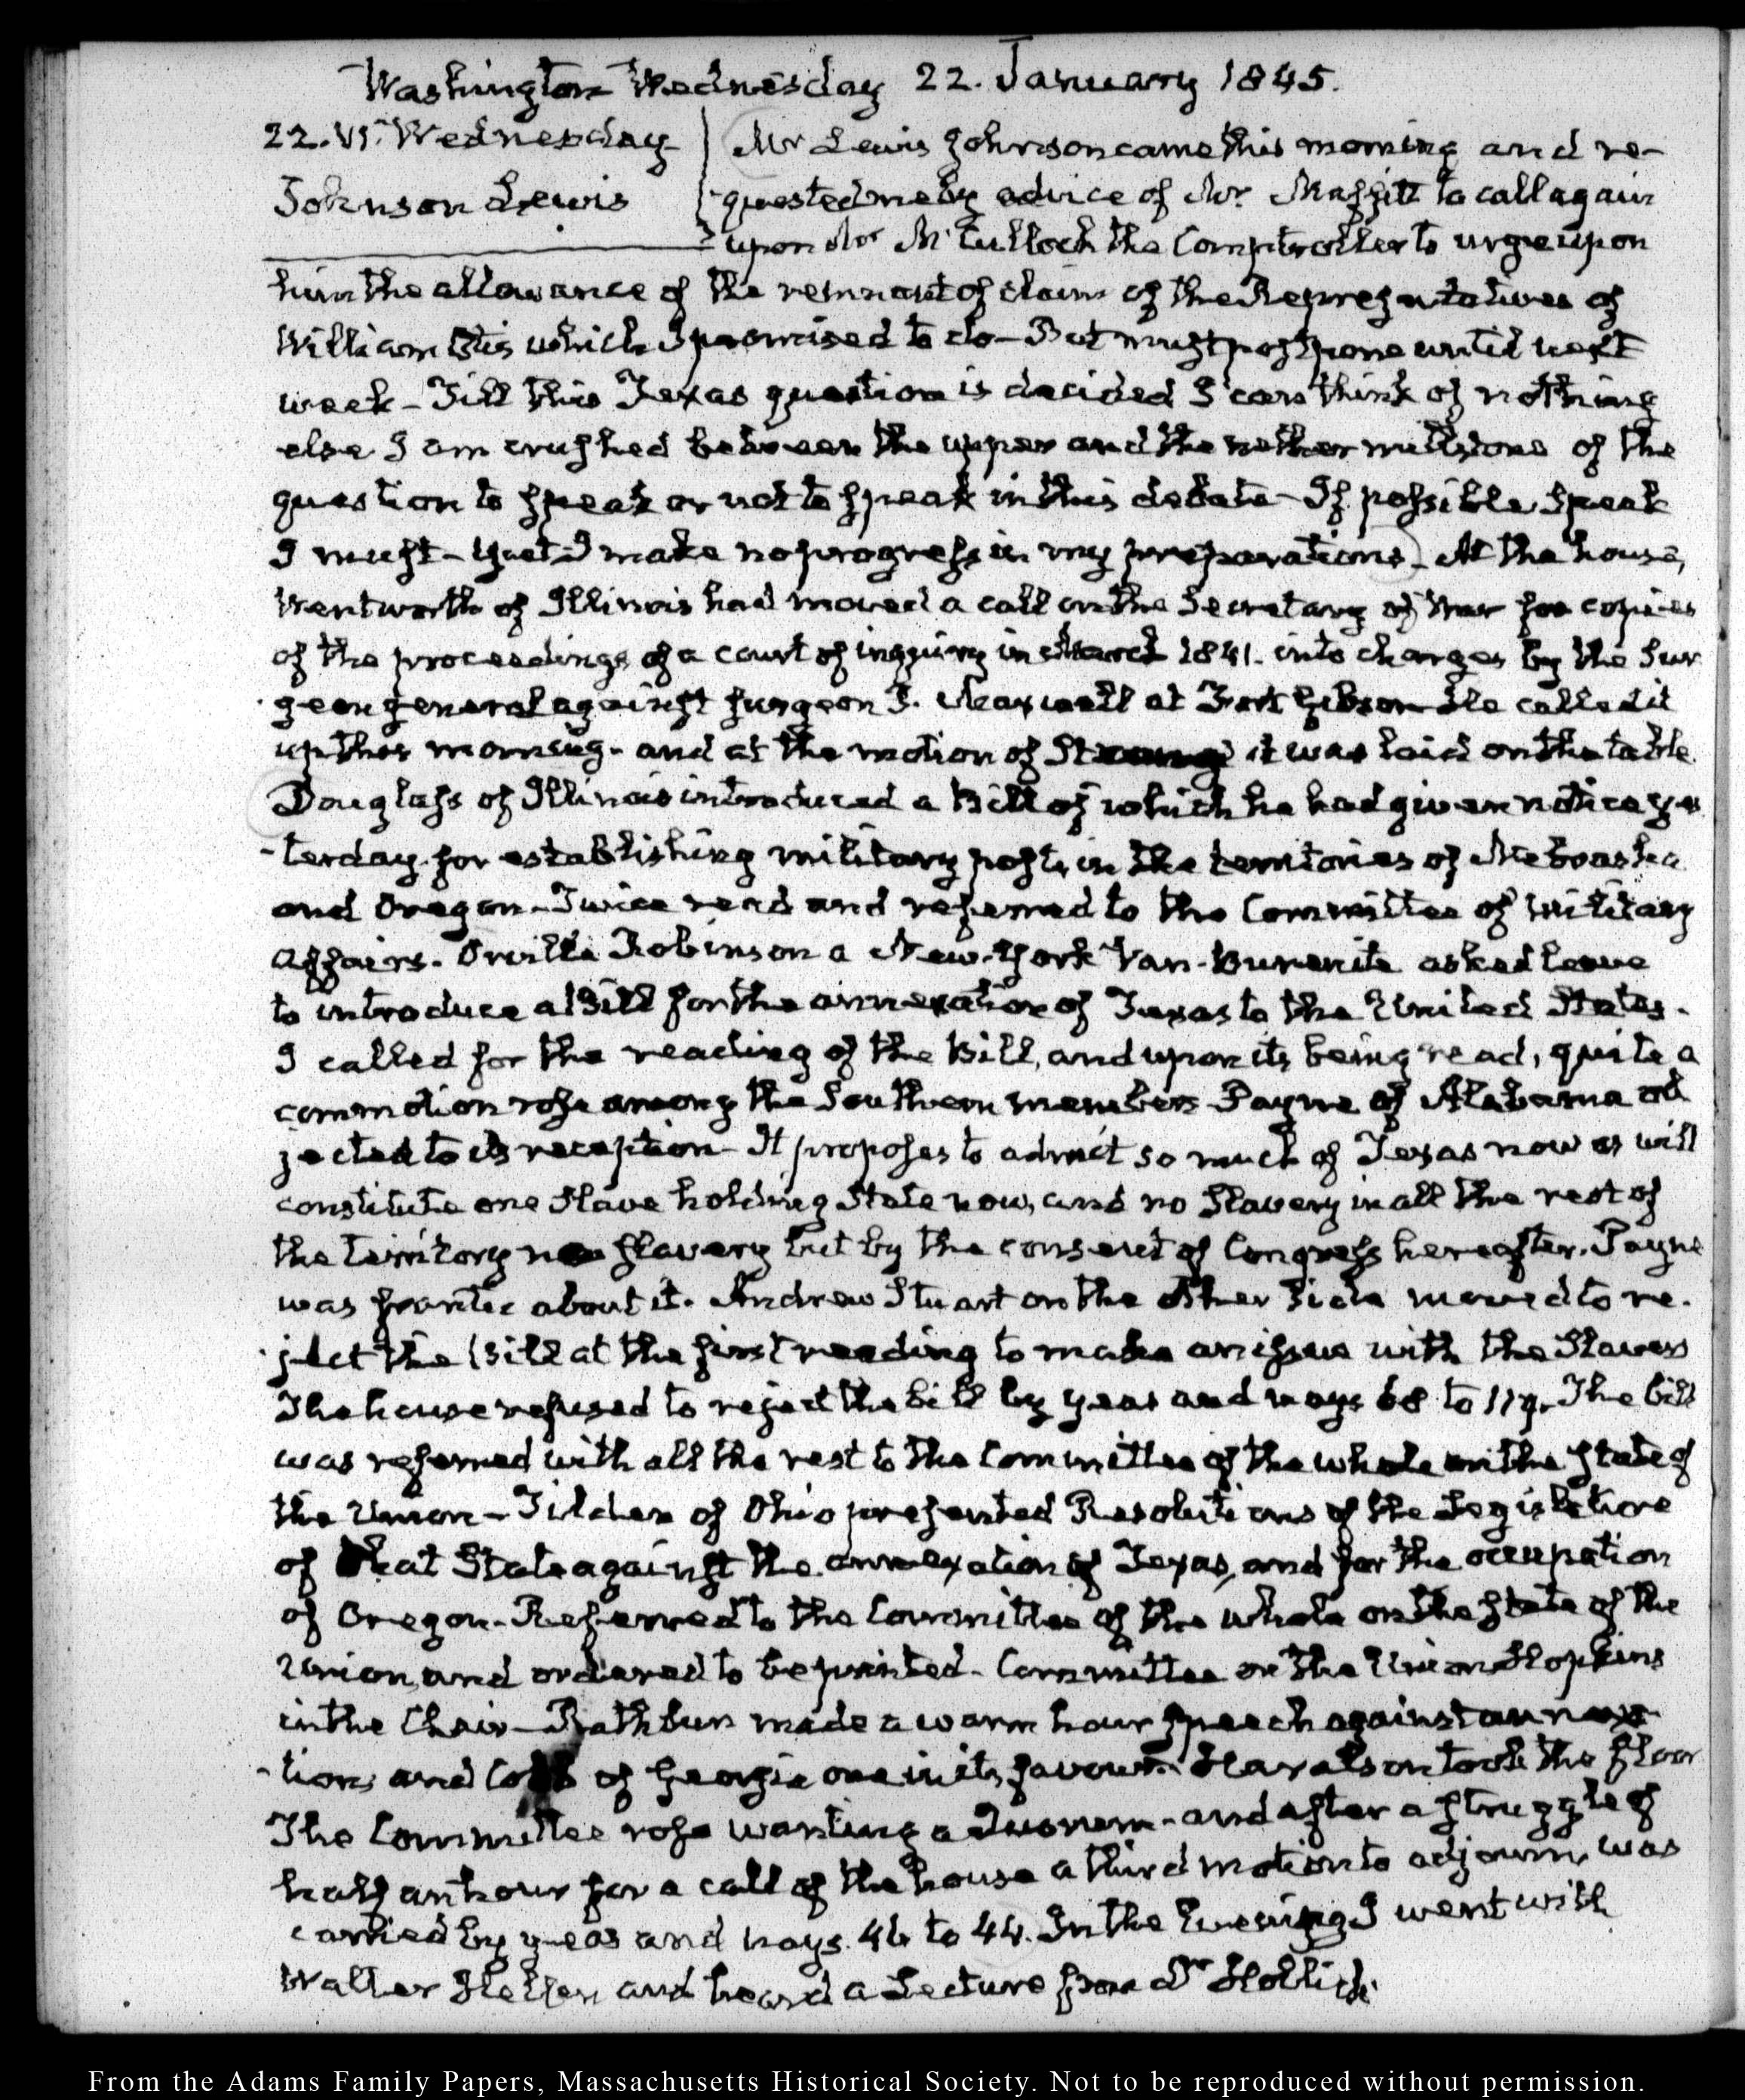 Washington Wednesday 22. January 1845.
22. VI. Wednesday
Johnson Lewis
Mr Lewis Johnson came this morning and re-
quested me by advice of Mr. Maffitt to call again
upon Mr McCulloch the Comptroller to urge upon
him the allowance of the remnant of claim of the Representatives of
William Otis which I promised to do - But must postpone until next
week - Till this Texas question is decided I can think of nothing
else I am crushed between the upper and the nether millstone of the
question to speak or not to speak in this debate - If possible, speak
I must - yet I make no progress in my preparations. At the house,
Wentworth of Illinois had moved a call on the Secretary of War for copies
of the proceedings of a court of inquiry in March 1841. into charges by the Sur
geon general against surgeon J. Maxwell at Fort Gibson He called it
up this morning - and at the motion of it was laid on the table.
Douglass of Illinois introduced a Bill of which he had given notice yes
-terday for establishing military posts in the territories of Nebraska
and Oregon - Twice read and referred to the Committee of Military
Affairs. Orville Robinson a New-York Van-Burenite asked leave
to introduce a Bill for the annexation of Texas to the United States.
I called for the reading of the Bill, and upon its being read, quite a
commotion rose among the Southern members Payne of Alabama ob
jected to its reception - It proposes to admit so much of Texas now as will
constitute one Slave holding State now, and no Slavery in all the rest of
the territory no slavery but by the consent of Congress hereafter. Payne
was frantic about it. Andrew Stuart on the other side moved to re.
-ject the Bill at the first reading to make an issue with the Slavers
The house refused to reject the bill by yeas and nays 68 to 119. The bill
was referred with all the rest to the Committee of the whole on the state of
the Union - Tilden of Ohio presented Resolutions of the Legislature
of that State against the annexation of Texas, and for the occupation
of Oregon - Referred to the Committee of the whole on the state of the
Union, and ordered to be printed - Committee on the Union Hopkins
in the Chair - Rathbun made a warm hour speech against annexa-
-tion, and Cobb of Georgia one in its favour. Haralson took the floor
The Committee rose wanting a Quorum - and after a struggle of
half an hour for a call of the house a third motion to adjourn, was
carried by yeas and nays. 46 to 44. In the Evening I went with
Walter Hellen and heard a Lecture from Dr Hollick.
From the Adams Family Papers, Massachusetts Historical Society. Not to be reproduced without permission.